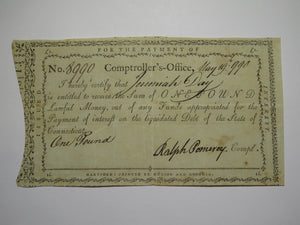 FOR THE PAYMENT OF
No. 8990 Comptroller's-Office, May 10 1790
I hereby certify that Jeremiah Day
is entitled to receive the Sum of ONE POUND
Lawful Money, out of any Funds appropriated for the
Payment of interest on the liquidated Debt of the State of
Connecticut.
One Pound
Ralph Pomeroy Compt.
HARTFORD: PRINTED BY HUDSON AND GOODWIN.